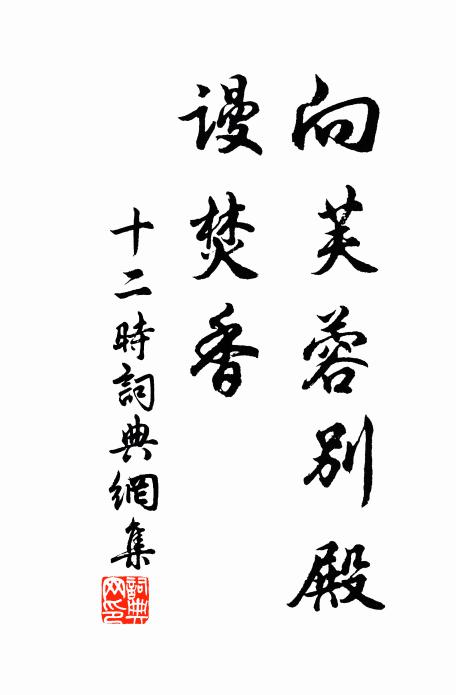 向芙蓉别殿
谩焚香
十二時詞典網集
詞典
网印